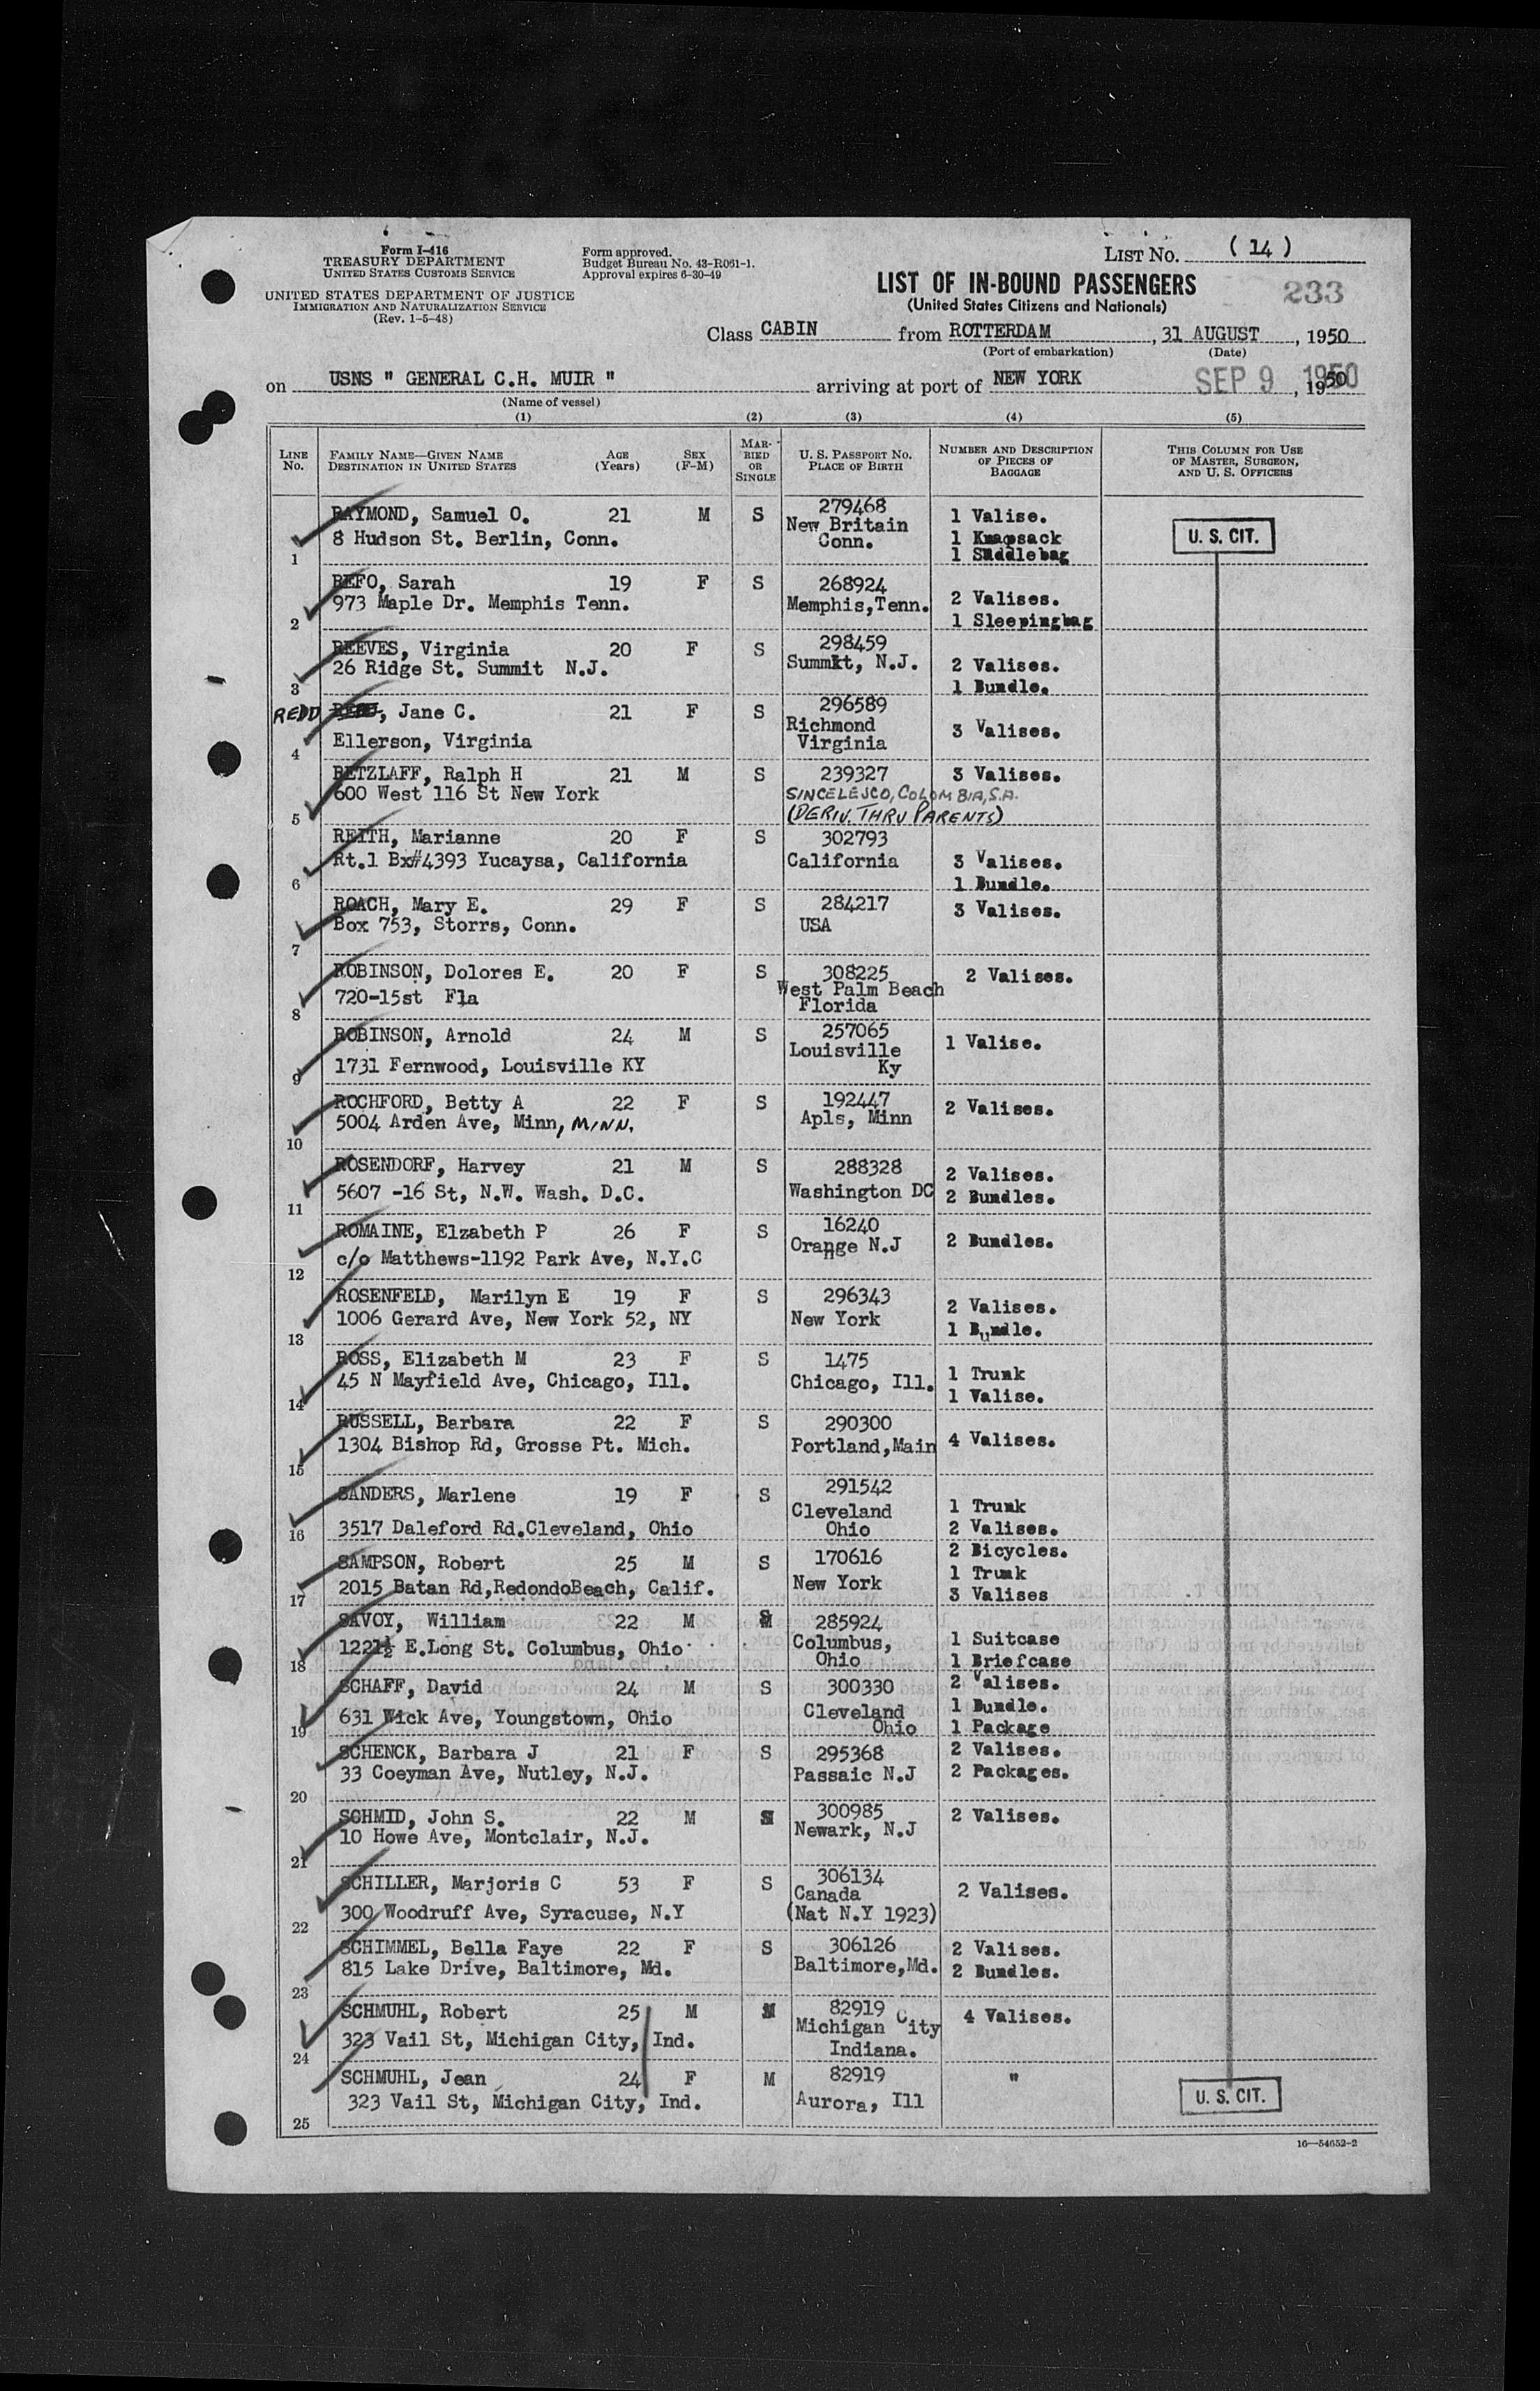 Form I-416
TREASURY DEPARTMENT
UNITED STATES CUSTOMS SERVICE
UNITED STATES DEPARTMENT OF JUSTICE
IMMIGRATION AND NATURALIZATION SERVICE
(Rev. 1-5-48)
Form approved.
Budget Bureau No. 43-R061-1.
Approval expires 6-30-49
LIST NO. (14)
LIST OF IN-BOUND PASSENGERS
233
(United States Citizens and Nationals)
Class CABIN from ROTTERDAM, 31 AUGUST, 1950
(Port of embarkation) (Date)
on USNS " GENERAL C.H. MUIR " arriving at port of NEW YORK SEP 9 1950, 1950
(Name of vessel)
(1) (2) (3) (4) (5)
LINE NO. FAMILY NAME—GIVEN NAME DESTINATION IN UNITED STATES AGE (Years) SEX (F-M) MARRIED OR SINGLE U. S. PASSPORT NO. PLACE OF BIRTH NUMBER AND DESCRIPTION OF PIECES OF BAGGAGE THIS COLUMN FOR USE OF MASTER, SURGEON, AND U. S. OFFICERS
RAYMOND, Samuel O. 21 M S 279468 1 Valise.
8 Hudson St. Berlin, Conn. New Britain Conn. 1 Knapsack
1 1 Saddlebag
U. S. CIT.
REFO, Sarah 19 F S 268924
973 Maple Dr. Memphis Tenn. Memphis,Tenn. 2 Valises.
2 1 Sleepingbag
REEVES, Virginia 20 F S 298459
26 Ridge St. Summit N.J. Summit, N.J. 2 Valises.
3 1 Bundle.
REDD, Jane C. 21 F S 296589
Ellerson, Virginia Richmond Virginia 3 Valises.
4
RETZLAFF, Ralph H 21 M S 239327 3 Valises.
600 West 116 St New York SINCELEJCO, COLOMBIA, S.A.
5 (DERIV. THRU PARENTS)
REITH, Marianne 20 F S 302793
Rt.1 Bx#4393 Yucaysa, California California 3 Valises.
6 1 Bundle.
ROACH, Mary E. 29 F S 284217 3 Valises.
Box 753, Storrs, Conn. USA
7
ROBINSON, Dolores E. 20 F S 308225 2 Valises.
720-15st Fla West Palm Beach Florida
8
ROBINSON, Arnold 24 M S 257065 1 Valise.
1731 Fernwood, Louisville KY Louisville Ky
9
ROCHFORD, Betty A 22 F S 192447 2 Valises.
5004 Arden Ave, Minn, MINN. Apls, Minn
10
ROSENDORF, Harvey 21 M S 288328 2 Valises.
5607 -16 St, N.W. Wash. D.C. Washington DC 2 Bundles.
11
ROMAINE, Elzabeth P 26 F S 16240 2 Bundles.
c/o Matthews-1192 Park Ave, N.Y.C Orange N.J
12
ROSENFELD, Marilyn E 19 F S 296343 2 Valises.
1006 Gerard Ave, New York 52, NY New York 1 Bundle.
13
ROSS, Elizabeth M 23 F S 1475 1 Trunk
45 N Mayfield Ave, Chicago, Ill. Chicago, Ill. 1 Valise.
14
RUSSELL, Barbara 22 F S 290300 4 Valises.
1304 Bishop Rd, Grosse Pt. Mich. Portland,Main
15
SANDERS, Marlene 19 F S 291542 1 Trunk
3517 Daleford Rd.Cleveland, Ohio Cleveland Ohio 2 Valises.
16
SAMPSON, Robert 25 M S 170616 2 Bicycles.
2015 Batan Rd,RedondoBeach, Calif. New York 1 Trunk
17 3 Valises
SAVOY, William 22 M S 285924 1 Suitcase
1221½ E.Long St. Columbus, Ohio Columbus, Ohio 1 Briefcase
18
SCHAFF, David 24 M S 300330 2 Valises.
631 Wick Ave, Youngstown, Ohio Cleveland Ohio 1 Bundle.
19 1 Package
SCHENCK, Barbara J 21 F S 295368 2 Valises.
33 Coeyman Ave, Nutley, N.J. Passaic N.J 2 Packages.
20
SCHMID, John S. 22 M S 300985 2 Valises.
10 Howe Ave, Montclair, N.J. Newark, N.J
21
SCHILLER, Marjoris C 53 F S 306134 2 Valises.
300 Woodruff Ave, Syracuse, N.Y Canada (Nat N.Y 1923)
22
SCHIMMEL, Bella Faye 22 F S 306126 2 Valises.
815 Lake Drive, Baltimore, Md. Baltimore,Md. 2 Bundles.
23
SCHMUHL, Robert 25 M M 82919 4 Valises.
323 Vail St, Michigan City, Ind. Michigan City Indiana.
24
SCHMUHL, Jean 24 F M 82919 "
323 Vail St, Michigan City, Ind. Aurora, Ill
25
U. S. CIT.
16—54652-2